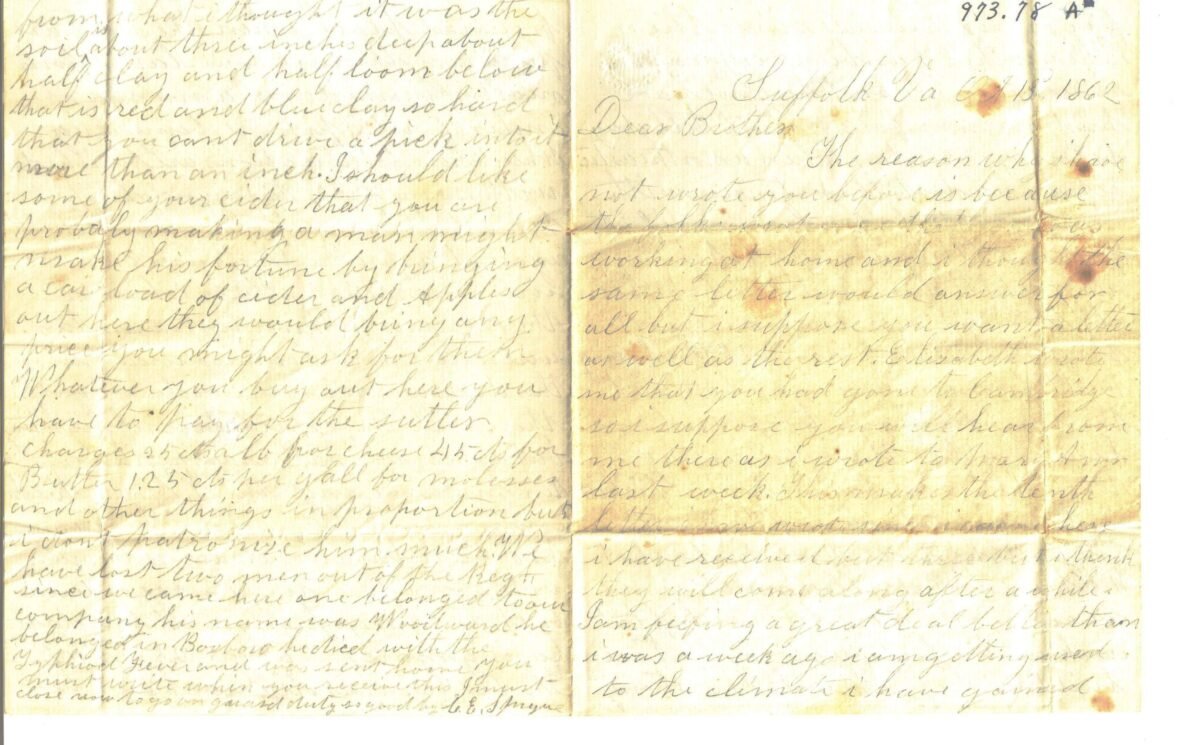 973.78 A
Suffolk Va Oct 15 1862
Dear Brother
The reason why i have
not wrote you before is because
the folks wrote me that was
working at home and i thought the
same letter would answer for
all but i suppose you want a letter
as well as the rest. Elisabeth wrote
me that you had gone to Cambridge
so i suppose you will hear from
me there as i wrote to Mary Ann
last week. This makes the tenth
letter i have wrote since i came here
i have received but three but i think
they will come along after a while.
I am feeling a great deal better than
i was a week ago i am getting used
to the climate i have gained
from what i thought it was the
soil is about three inches deep about
half clay and half loom below
that is red and blue clay so hard
that you cant drive a pick into it
more than an inch. I should like
some of your cider that you are
probaly making a man might
make his fortune by bringing
a car load of cider and Apples
out here they would bring any
price you might ask for them
Whatever you buy out here you
have to pay for the sutter
charges 25 cts a lb for cheese 45 cts for
Butter 1.25 cts per gall for molesses
and other things in proportion but
i don't patronise him much. We
have lost two men out of the Regt
since we came here one belonged to our
company his name was Woodward he
belonged in Boxboro he died with the
Typhiod Fever and was sent home You
must write when you receive this I must
close now to go on guard duty so good by C. E. Sprague